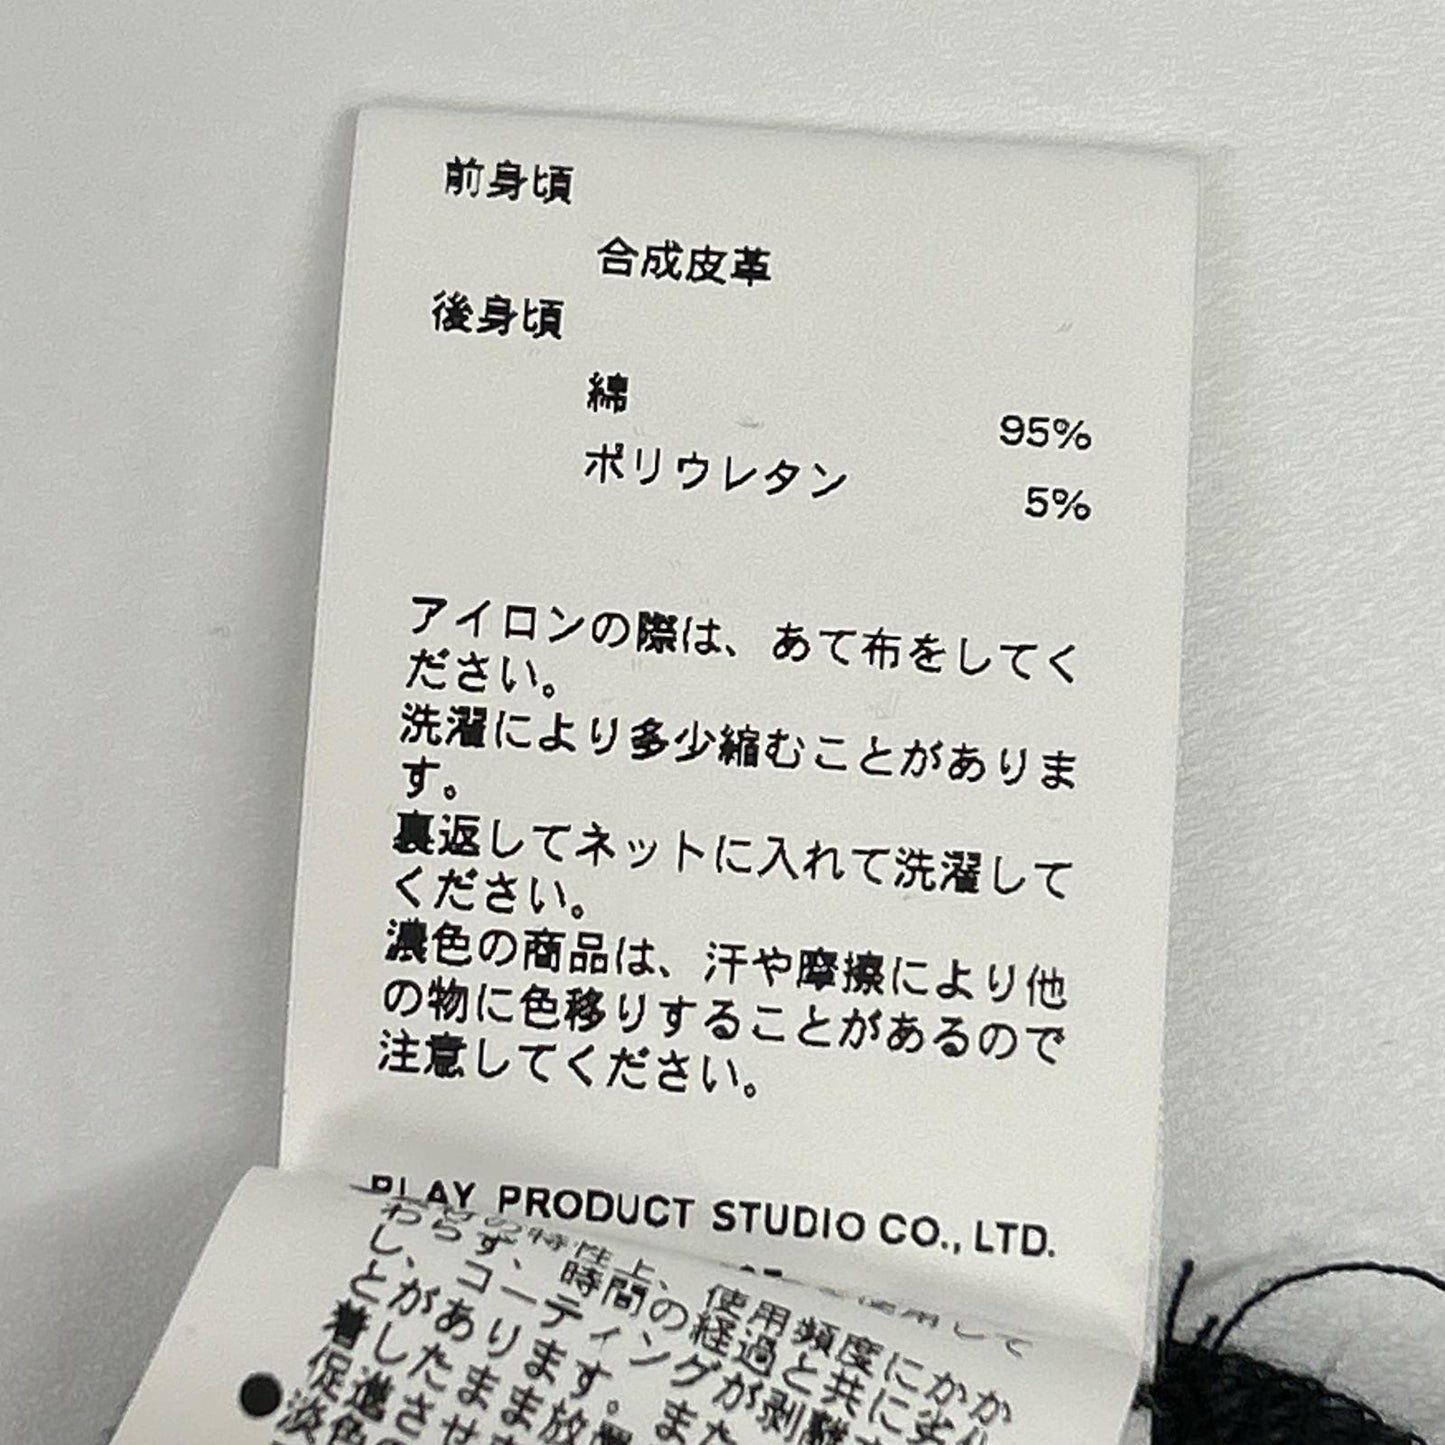 前身頃
合成皮革
後身頃
綿 95%
ポリウレタン 5%
アイロンの際は、あて布をしてく
ださい。
洗濯により多少縮むことがありま
す。
裏返してネットに入れて洗濯して
ください。
濃色の商品は、汗や摩擦により他
の物に色移りすることがあるので
注意してください。
PLAY PRODUCT STUDIO CO., LTD.
の特性上、使用頻度にかか
わらず、時間の経過と共に
し、コーティングが剥離
とがあります。また
着したまま放
促進させ
●淡色